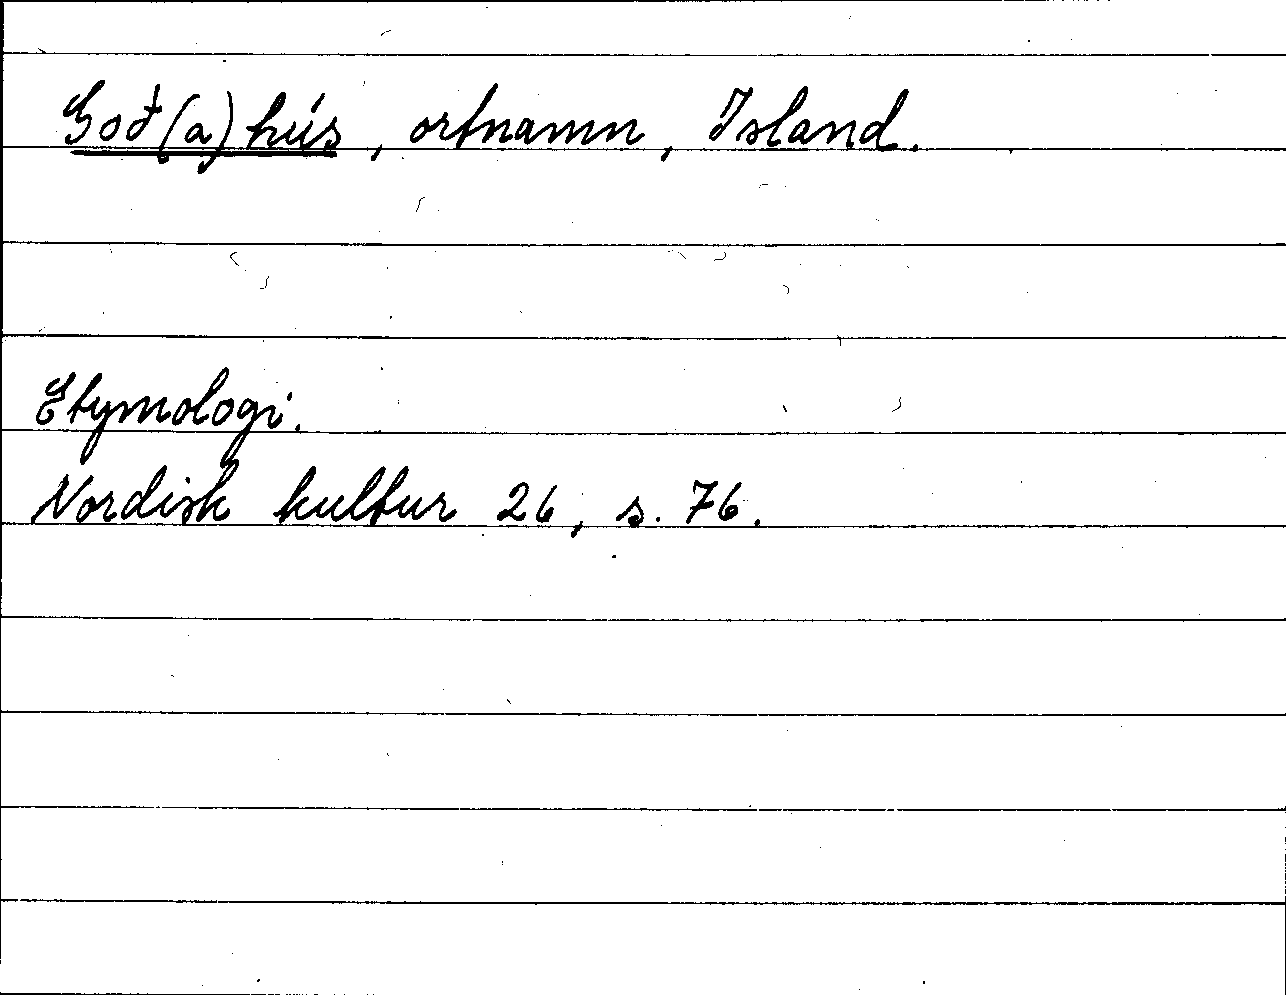 Goð(a)hús, ortnamn, Island.
Etymologi.
Nordisk kultur 26, s. 76.